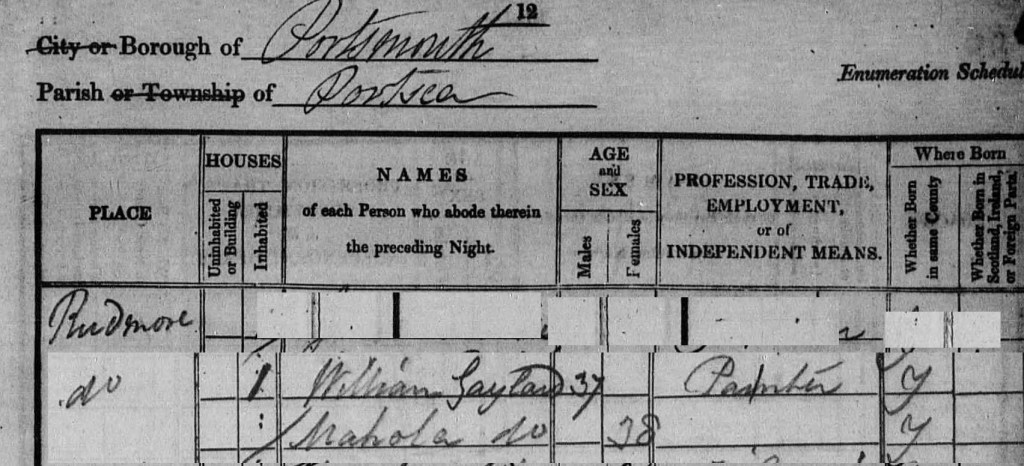 12
City or Borough of Portsmouth
Parish or Township of Portsea
Enumeration Schedul
PLACE
HOUSES
Uninhabited or Building
Inhabited
NAMES
of each Person who abode therein
the preceding Night.
AGE
and
SEX
Males
Females
PROFESSION, TRADE,
EMPLOYMENT,
or of
INDEPENDENT MEANS.
Where Born
Whether Born in same County
Whether Born in Scotland, Ireland, or Foreign Parts.
Rudmore
do 1 William Gaylard 37 Painter Y
Mahola do 38 Y